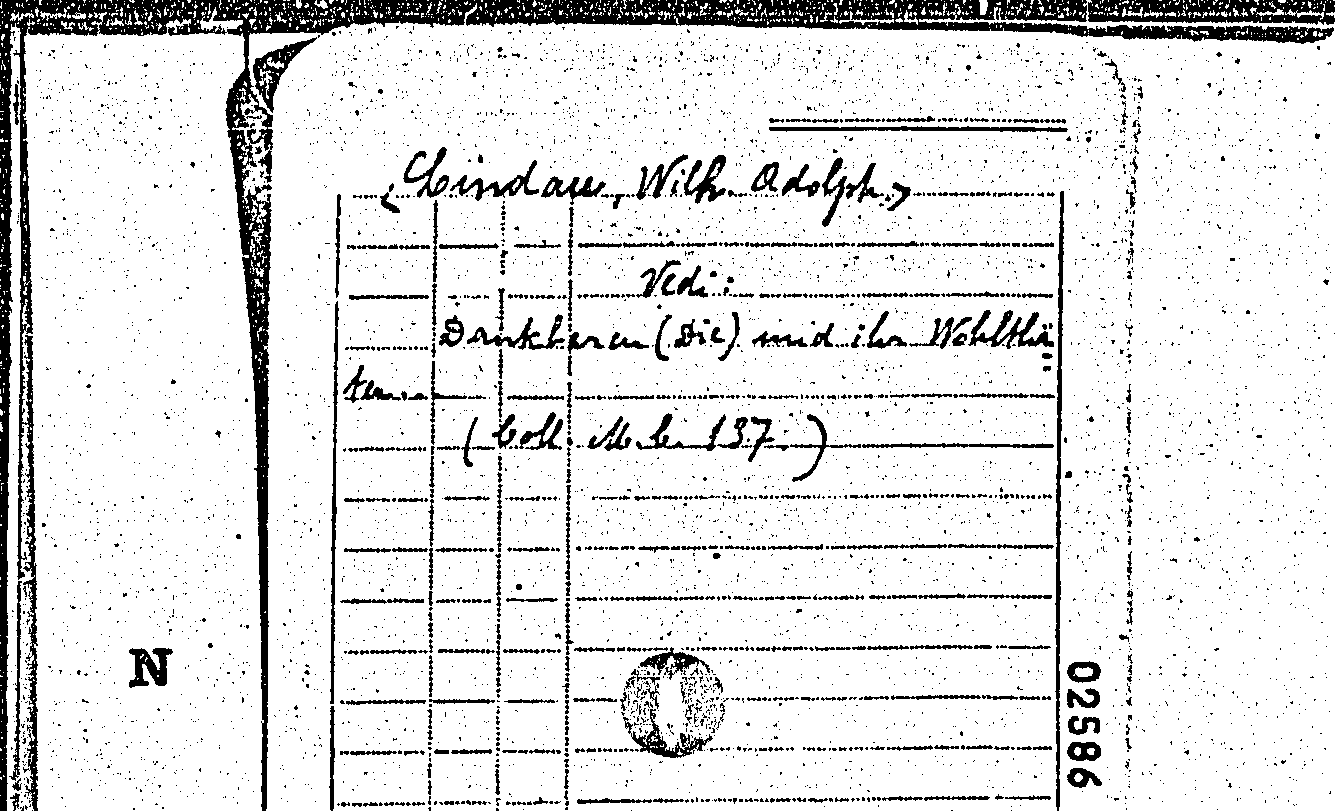 <Lindau, Wilh. Adolph.>
Vedi:
Dankbaren (Die) und ihr Wohlthä=
ter...
(Coll. M. C. 137.)
N
02586